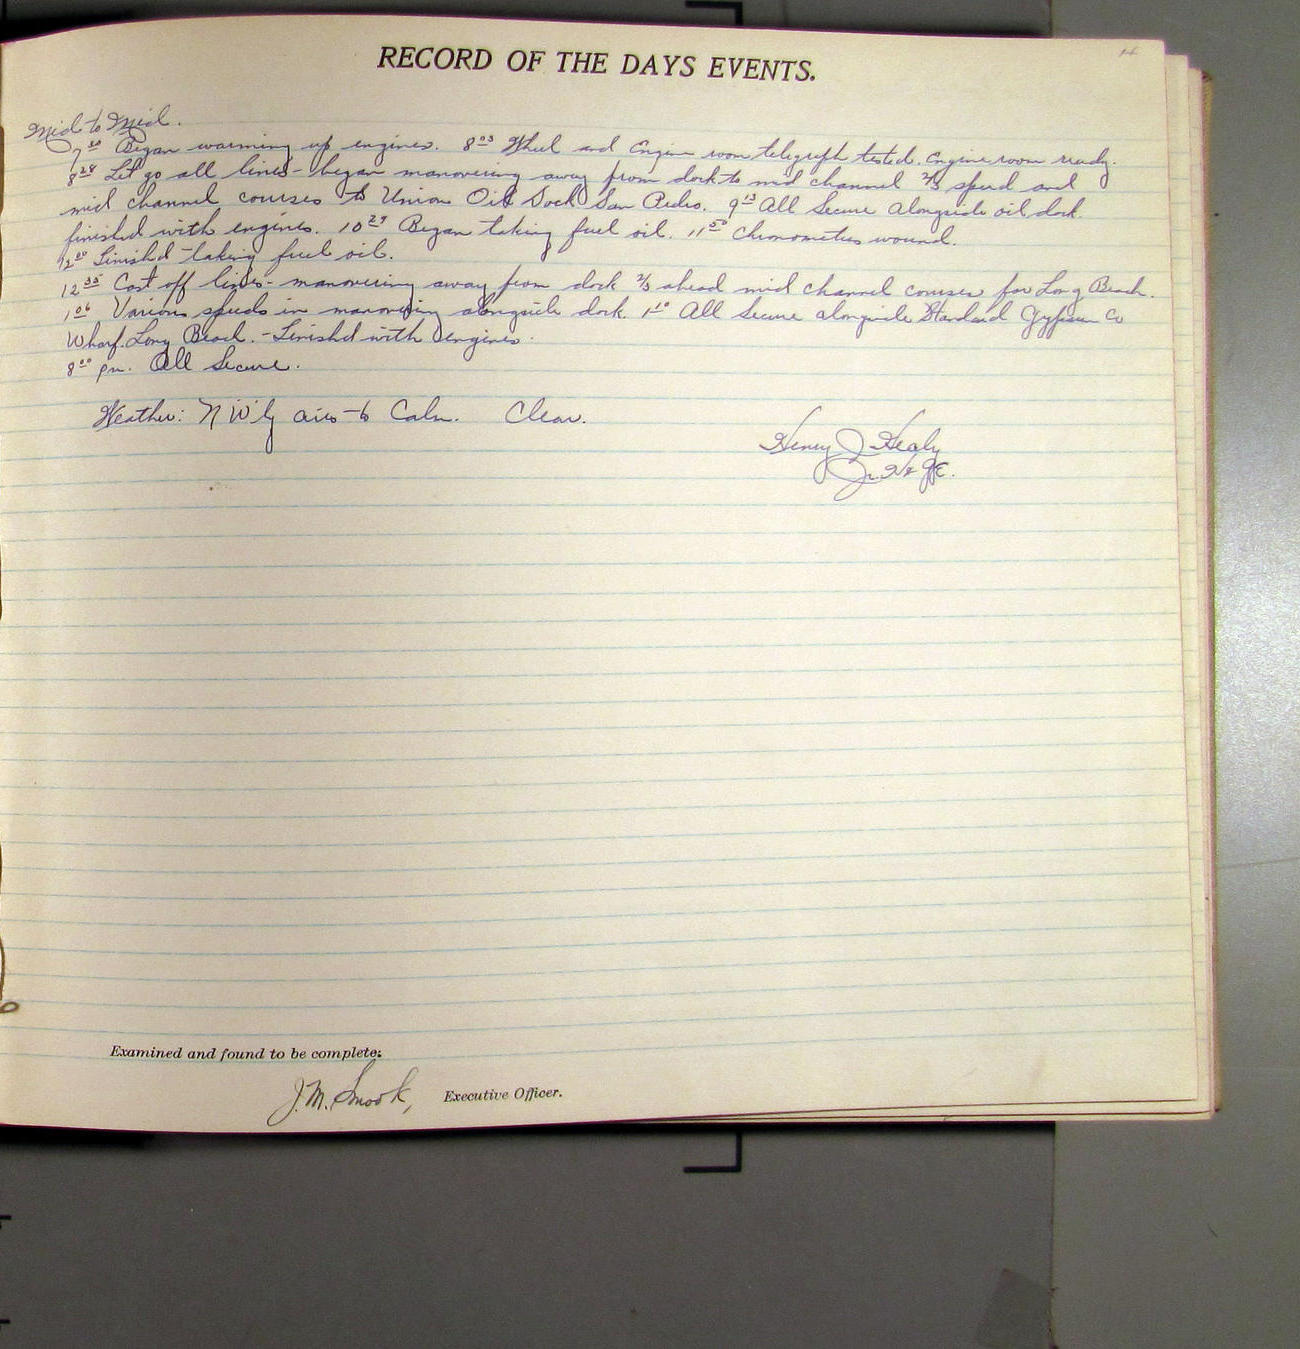 RECORD OF THE DAYS EVENTS.
Mid to Mid.
7 30 Began warming up engines. 8 03 Wheel and Engine room telegraph tested. Engine room ready.
8 28 Let go all lines - began manovering away from dock to mid channel 2/3 speed and
mid channel courses to Union Oil Dock San Pedro. 9 13 All Secure alongside oil dock.
finished with engines. 10 29 Began taking fuel oil. 11 50 Chronometers wound.
12 00 Finished taking fuel oil.
12 35 Cast off lines - manovering away from dock 2/3 ahead mid channel courses for Long Beach.
1 06 Various speeds in manovering alongside dock. 1 10 All Secure alongside Standard Gypsum Co
Wharf. Long Beach. - Finished with engines.
8 00 pm. All Secure.
Weather: N W'ly airs to Calm. Clear.
Henry J Healy
Jr. H & G E.
Examined and found to be complete:
J. M. Smook, Executive Officer.